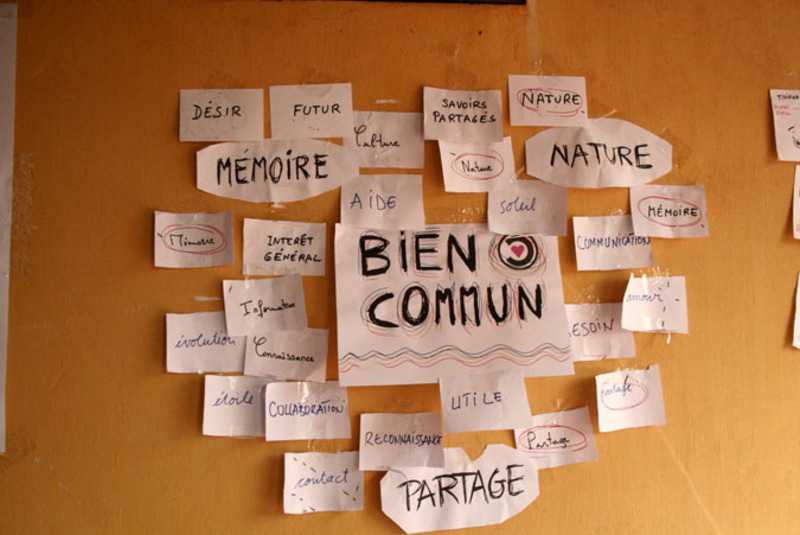 DÉSIR
FUTUR
Culture
SAVOIRS
PARTAGÉS
NATURE
MÉMOIRE
Nature
NATURE
AIDE
soleil
MÉMOIRE
Mémoire
INTERÊT
GÉNÉRAL
BIEN
COMMUN
COMMUNICATION
Information
amour
évolution
Connaissance
ESOIN
étoile
COLLABORATION
UTILE
partage
RECONNAISSANCE
Partage
contact
PARTAGE